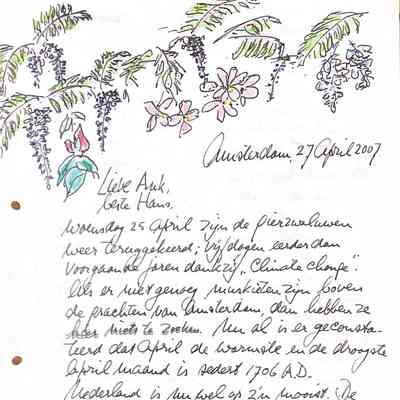 Amsterdam, 27 April 2007
Lieve Ank,
beste Hans,
Woensdag 25 April zijn de gierzwaluwen
weer teruggekeerd; vijf dagen eerder dan
voorgaande jaren dankzij „Climate Change".
Als er niet genoeg muskieten zijn boven
de grachten van Amsterdam, dan hebben ze
hier niets te zoeken. Nu al is er geconsta-
teerd dat April de warmste en de droogste
April maand is sedert 1706 A.D.
Nederland is nu wel op z'n mooist. De